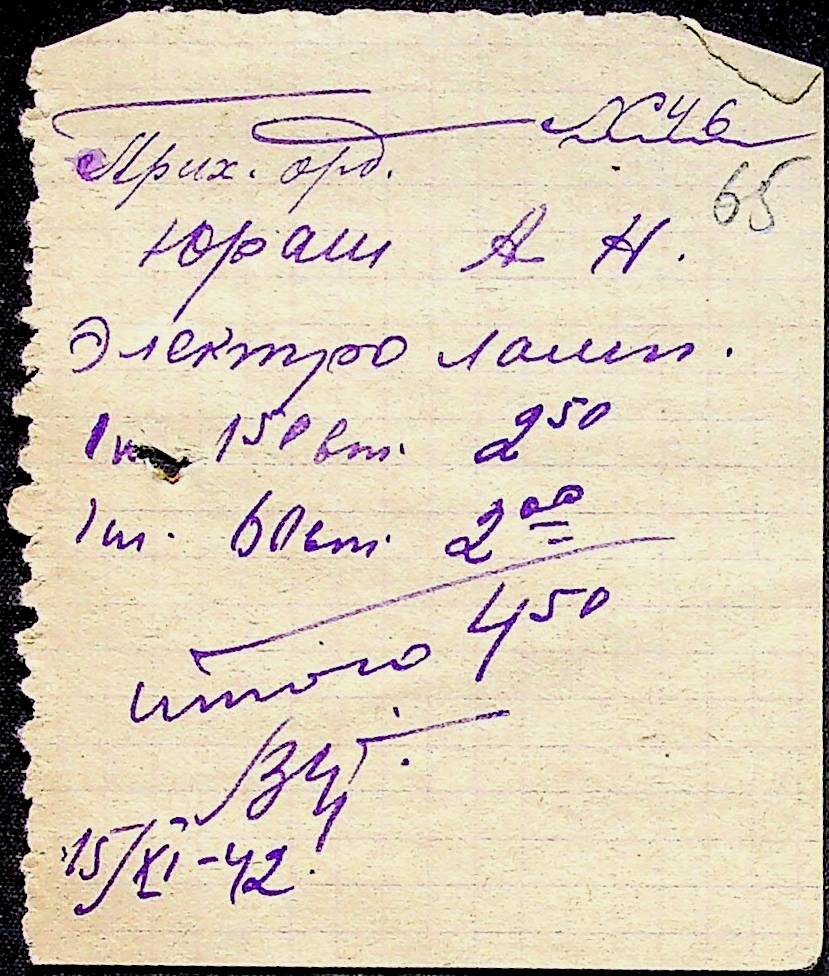 № 46
Прих. орд.
65
Юраш А Н.
Электро ламп.
1 150 вт. 2 50
1 шт. 60 вт. 2 00
4 50
итого
15/XI-42.